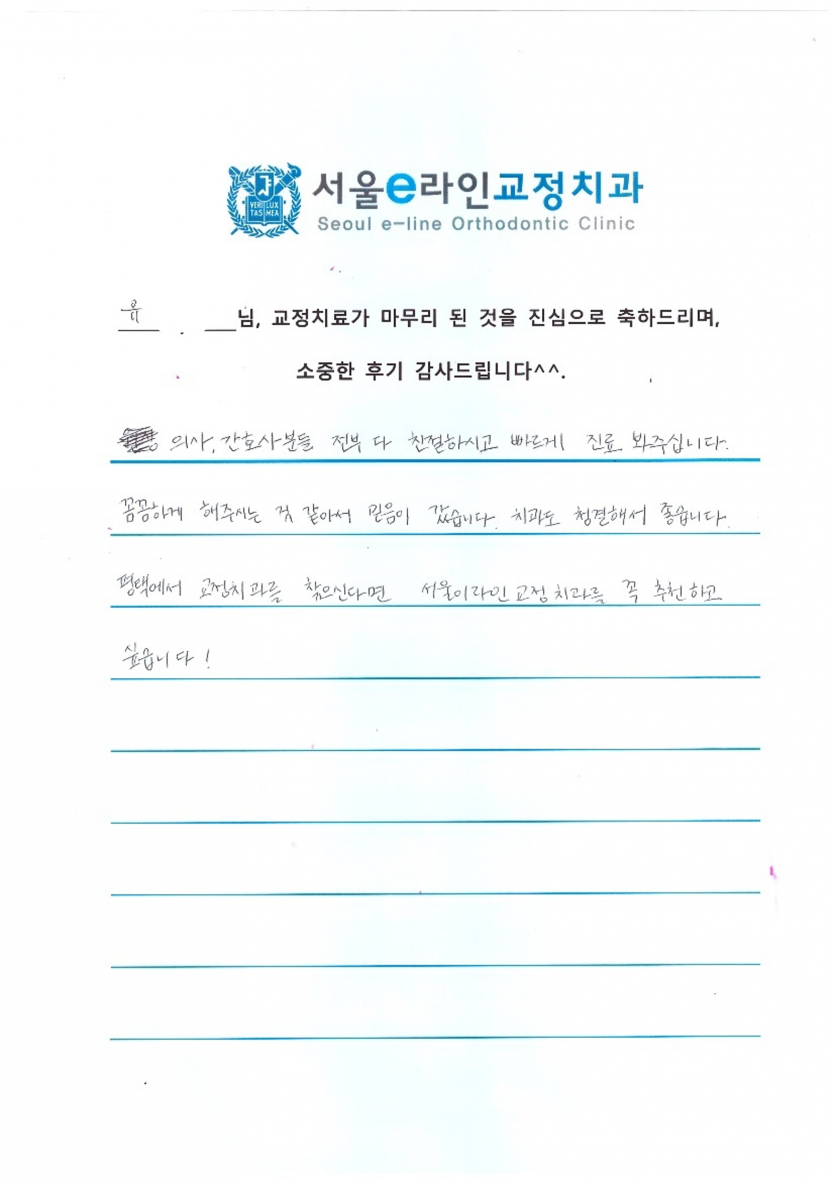 서울e라인교정치과
Seoul e-line Orthodontic Clinic
VERI LUX
TAS MEA
유 . 님, 교정치료가 마무리 된 것을 진심으로 축하드리며,
소중한 후기 감사드립니다^^.
의사, 간호사분들 전부 다 친절하시고 빠르게 진료 봐주십니다.
꼼꼼하게 해주시는 것 같아서 믿음이 갔습니다. 치과도 청결해서 좋습니다.
평택에서 교정치과를 찾으신다면 서울이라인교정치과를 꼭 추천하고
싶습니다!